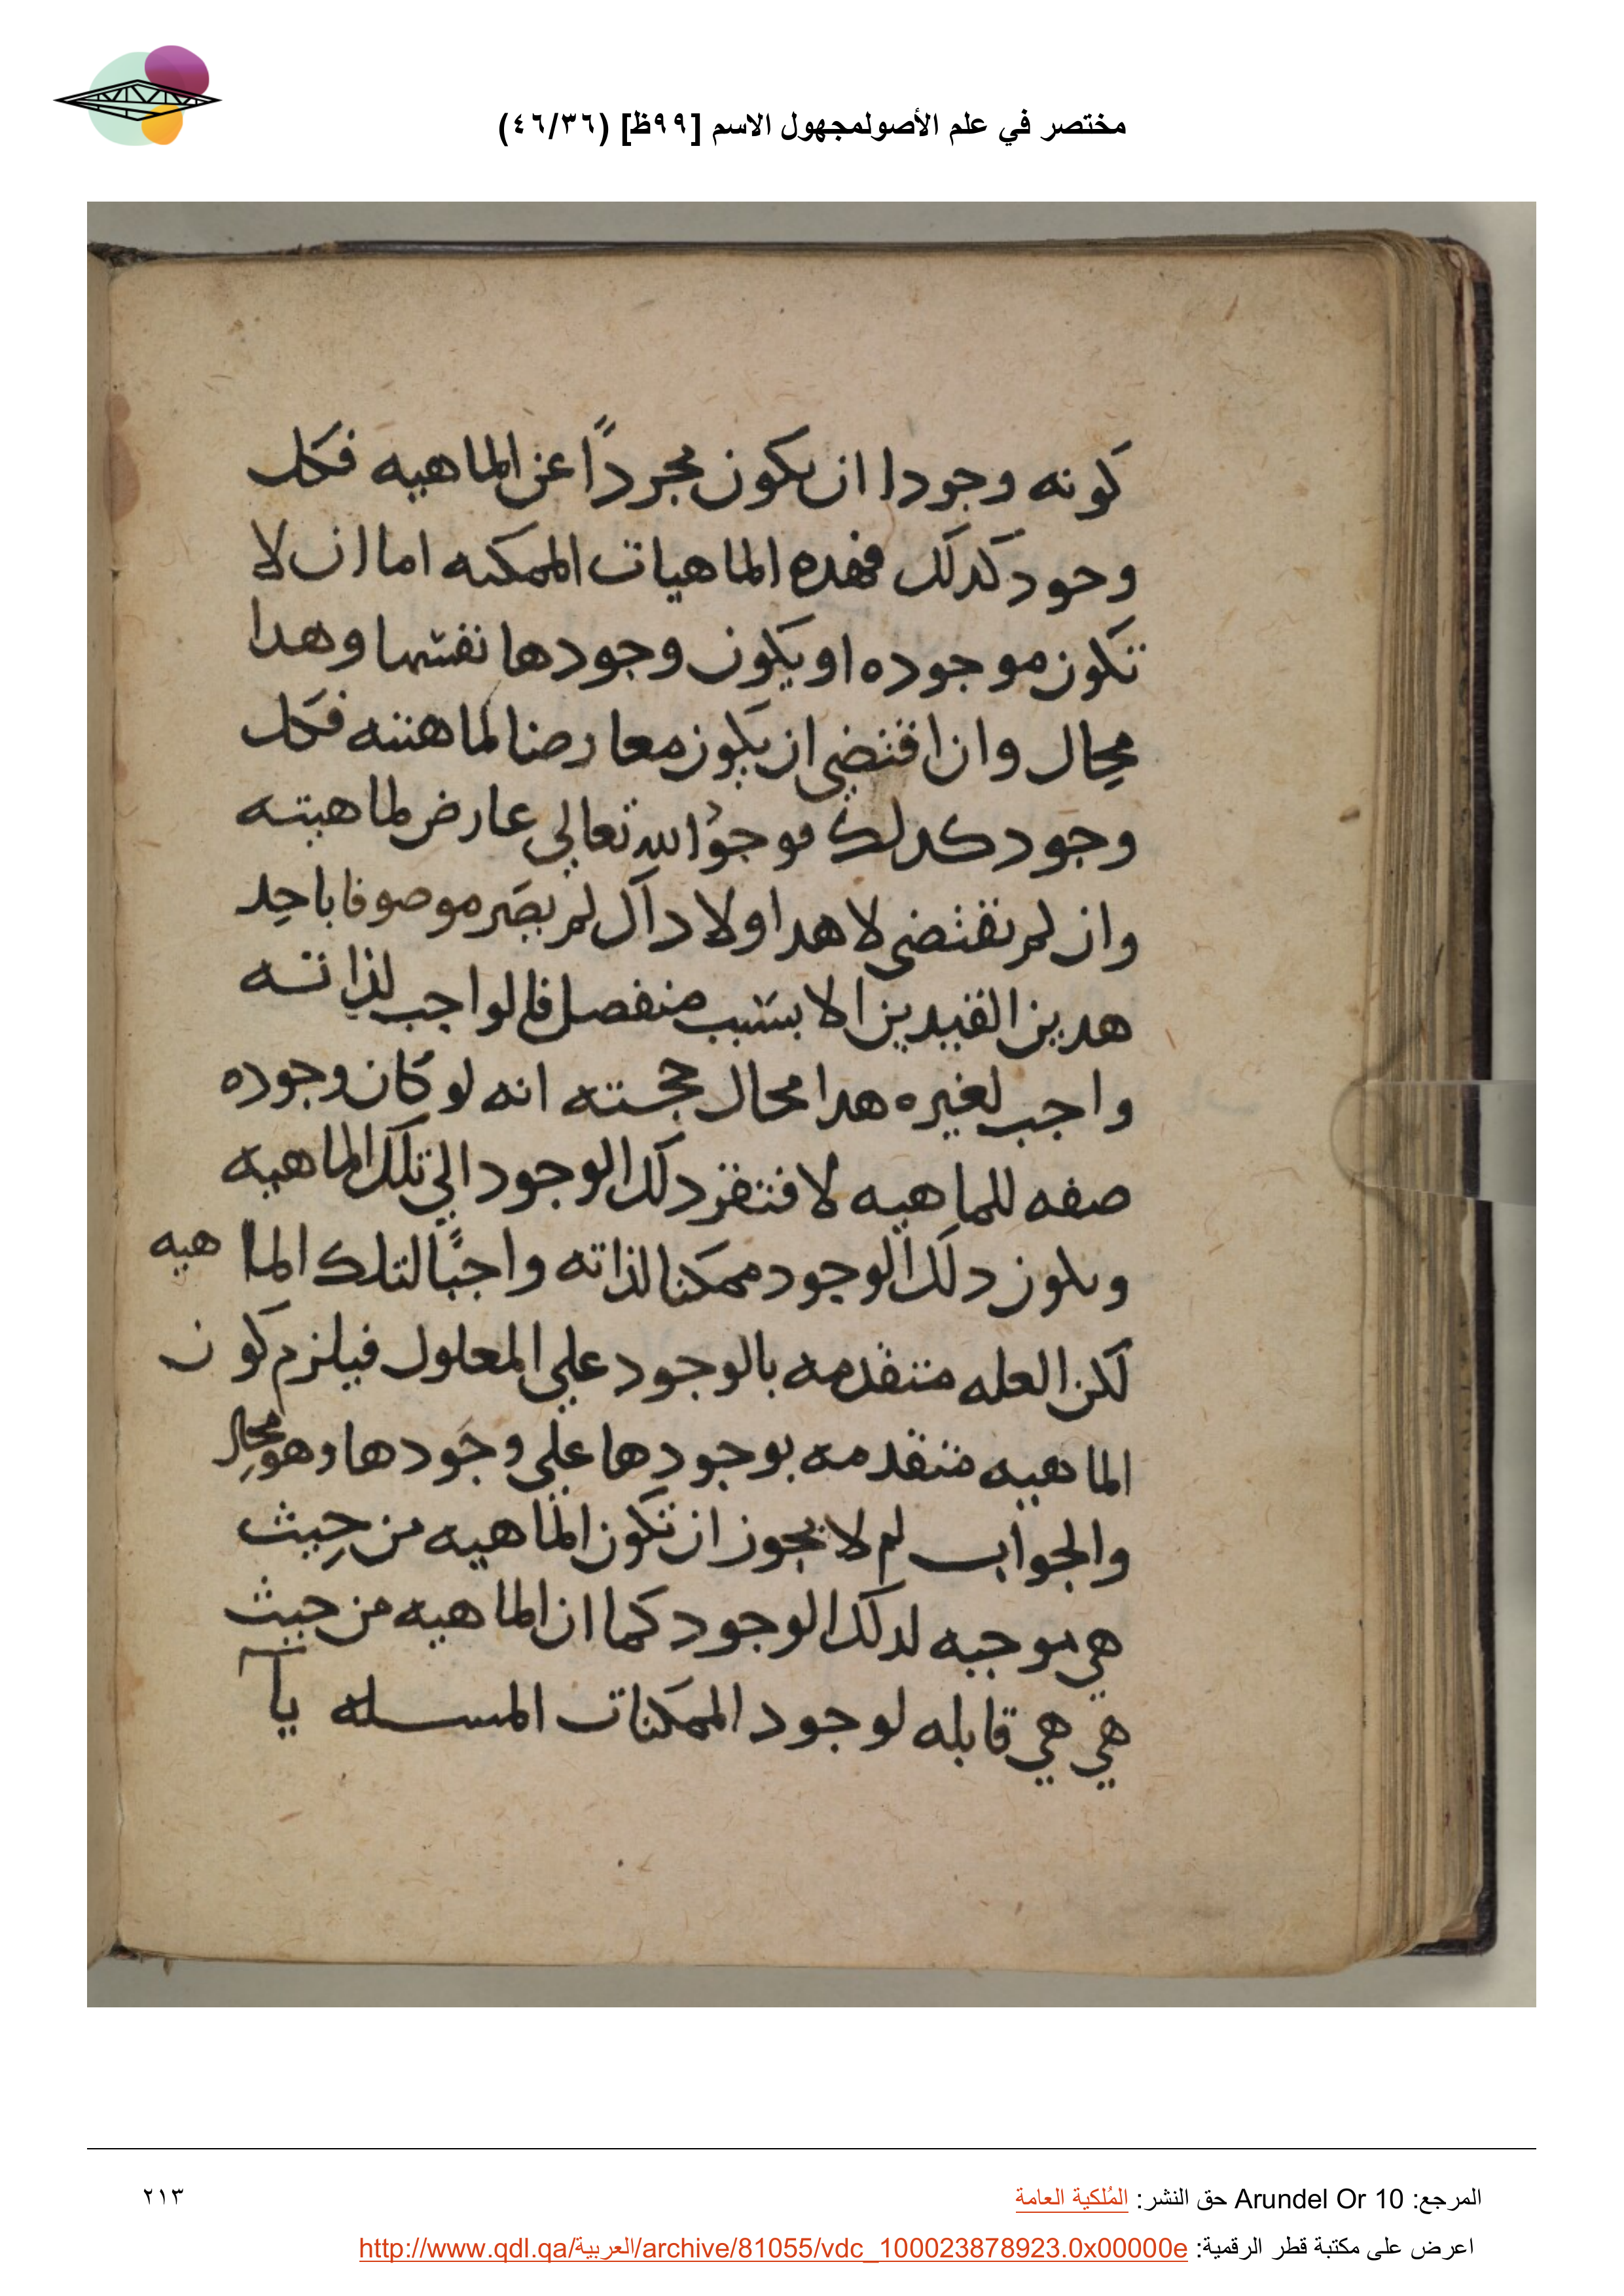 مختصر في علم الأصولمجهول الاسم [٩٩ظ] (٤٦/٣٦)
كونه وجودا ان يكون مجردًا عن الماهيه فكل
وجود كدلك فهده الماهيات الممكنه اما ان لا
تكون موجوده او يكون وجودها نفسها وهدا
محال وان اقتضى ان يكون معارضا لماهيته فكل
وجود كدلك فوجود الله تعالي عارض لماهيته
وان لم يقتضى لا هدا ولا داك لم يصر موصوفا باحد
هدين القيدين الا بسبب منفصل فالواجب لذاته
واجب لغيره هدا محال حجته انه لو كان وجوده
صفه للماهيه لافتقر دلك الوجود الي تلك الماهيه
ويكون دلك الوجود ممكنا لذاته واجبًا لتلك الماهيه
لكن العله متقدمه بالوجود علي المعلول فيلزم كون
الماهيه متقدمه بوجودها علي وجودها وهو محال
والجواب لم لا يجوز ان تكون الماهيه من حيث
هي موجبه لدلك الوجود كما ان الماهيه من حيث
هي هي قابله لوجود الممكنات المسله يا
المرجع: Arundel Or 10 حق النشر: المُلكية العامة
٢١٣
اعرض على مكتبة قطر الرقمية: http://www.qdl.qa/العربية/archive/81055/vdc_100023878923.0x00000e